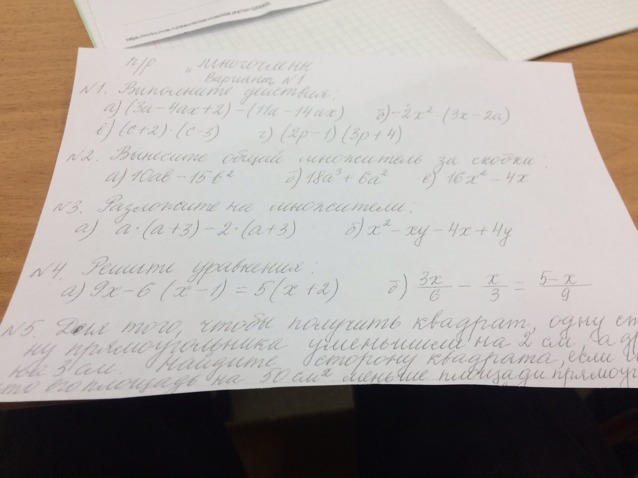 п/р „ Многочлены
Вариант №1
№1. Выполните действия:
а) (3a-4ax+2)-(11a-14ax) б) -2x² (3x-2a)
в) (c+2)·(c-3) г) (2p-1)(3p+4)
№2. Вынесите общий множитель за скобки:
а) 10ab-15b² б) 18a³+6a² в) 16x²-4x
№3. Разложите на множители:
а) a·(a+3)-2·(a+3) б) x²-xy-4x+4y
№4 Решите уравнения:
а) 9x-6(x-1)=5(x+2) б) 3x/6 - x/3 = 5-x/9
№5. Для того, чтобы получить квадрат, одну ст
ну прямоугольника уменьшили на 2 см, а др
на 3 см. Найдите сторону квадрата, если
то его площадь на 50 см² меньше площади прямоуг